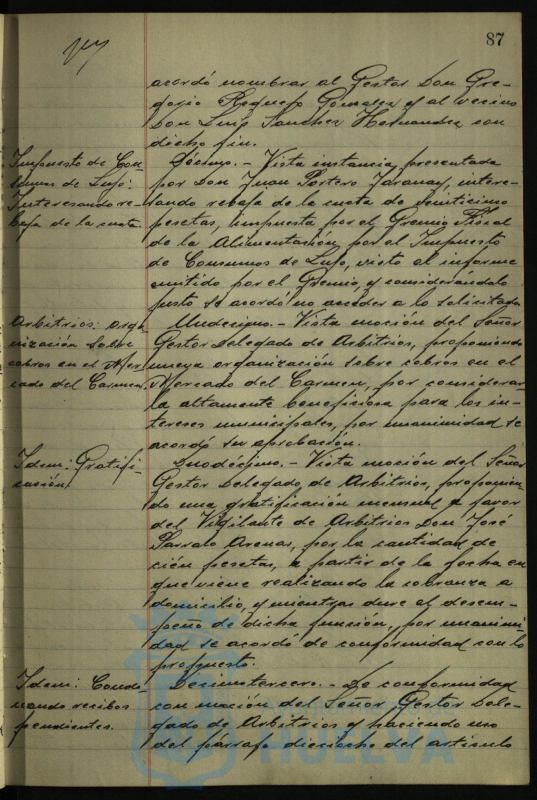 87
acordó nombrar al Gestor Don Gre-
gorio Requejo Gonzalez y al vecino
Don Luis Sanchez Hernandez con
dicho fin.
Impuesto de Con-
sumos de Lujo:
Interesando re-
baja de la cuota
Décimo.- Vista instancia presentada
por Don Juan Portero, intere-
sando rebaja de la cuota de
pesetas, impuesta por el Gremio Fiscal
de la Alimentación, por el Impuesto
de Consumos de Lujo, visto el informe
emitido por el Gremio, y considerándolo
justo se acordó no acceder a lo solicitado
Arbitrios: orga-
nización sobre
cobros en el Mer-
cado del Carmen
Undécimo.- Vista moción del Señor
Gestor Delegado de Arbitrios, proponiendo
nueva organización sobre cobros en el
Mercado del Carmen, por considerar-
la altamente beneficiosa para los in-
tereses municipales, por unanimidad se
acordó su aprobación.
Idem: Gratifi-
cación
Duodécimo.- Vista moción del Señor
Gestor Delegado de Arbitrios, proponien-
do una gratificación mensual a favor
del Vigilante de Arbitrios Don José
Arenas, por la cantidad de
cien pesetas, a partir de la fecha en
que viene realizando la cobranza a
domicilio, y mientras dure el desem-
peño de dicha función, por unanimi-
dad se acordó de conformidad con lo
propuesto.
Idem: Condo-
nando recibos
pendientes.
Decimotercero.- De conformidad
con moción del Señor Gestor Dele-
gado de Arbitrios y haciendo uso
del párrafo dieciocho del artículo
HUELVA